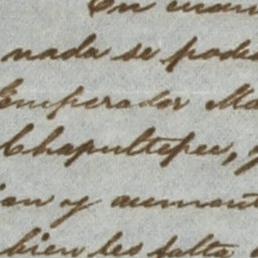 En cuan
nada se podi
Emperador Ma
Chapultepec, y
ian y aument
bien les falta